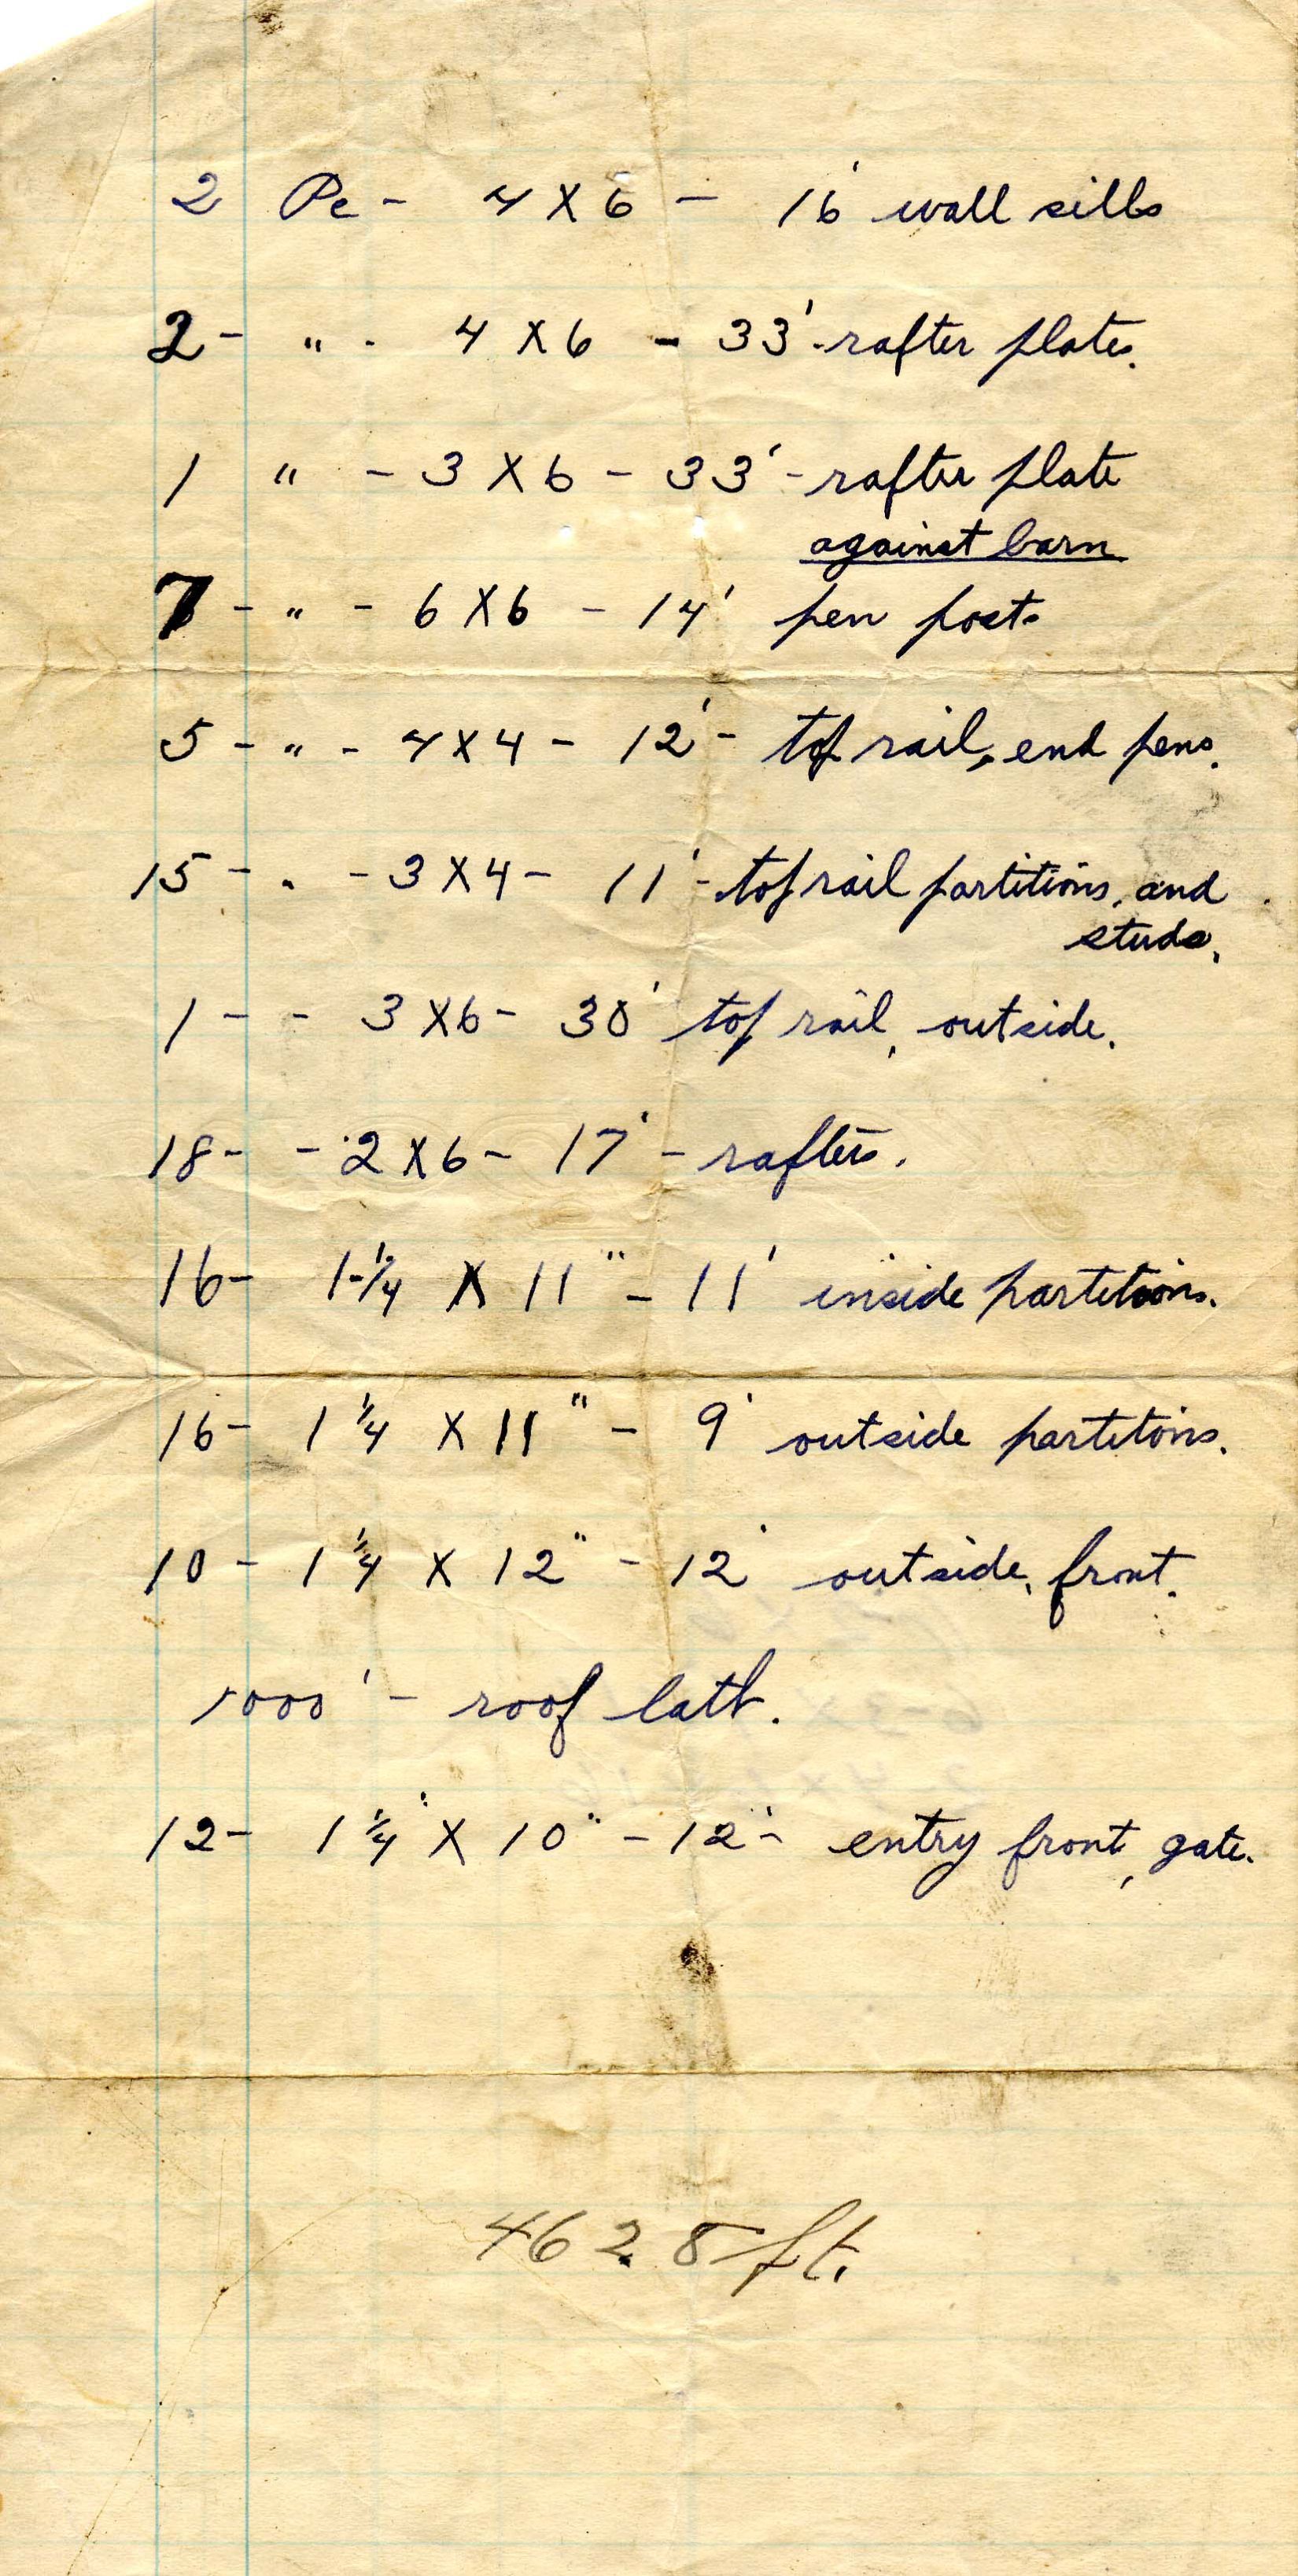 2 Pc - 4 X 6 - 16' wall sills
2 - " - 4 X 6 - 33' - rafter plates.
1 " - 3 X 6 - 33' - rafter plate
against barn
7 - " - 6 X 6 - 14' pen posts
5 - " - 4 X 4 - 12' - top rail, end pens.
15 - " - 3 X 4 - 11' - top rail partitions, and
studs.
1 - - 3 X 6 - 30' top rail, outside.
18 - - 2 X 6 - 17' - rafters.
16 - 1-1/4 X 11" - 11' inside partitions.
16 - 1 1/4 X 11" - 9' outside partitons.
10 - 1 1/4 X 12" - 12' outside, front.
1000' - roof lath.
12 - 1 1/4" X 10" - 12' - entry front, gate.
4628 ft.